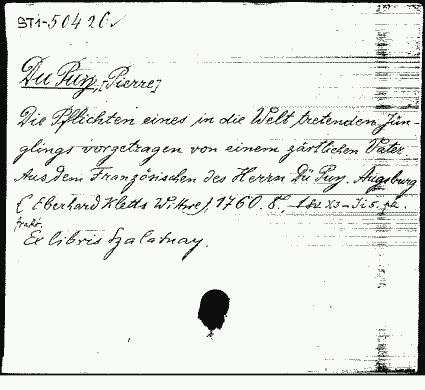 ST1-50426
Du Puy, [Pierre]
Die Pflichten eines in die Welt tretenden Jün-
glings vorgetragen von einem zärtlichen Vater
Aus dem Französischen des Herrn Dü Puy. Augsburg
(Eberhard Kletts Wittwe), 1760. 8°.
frakt.
Ex libris Szalatnay.